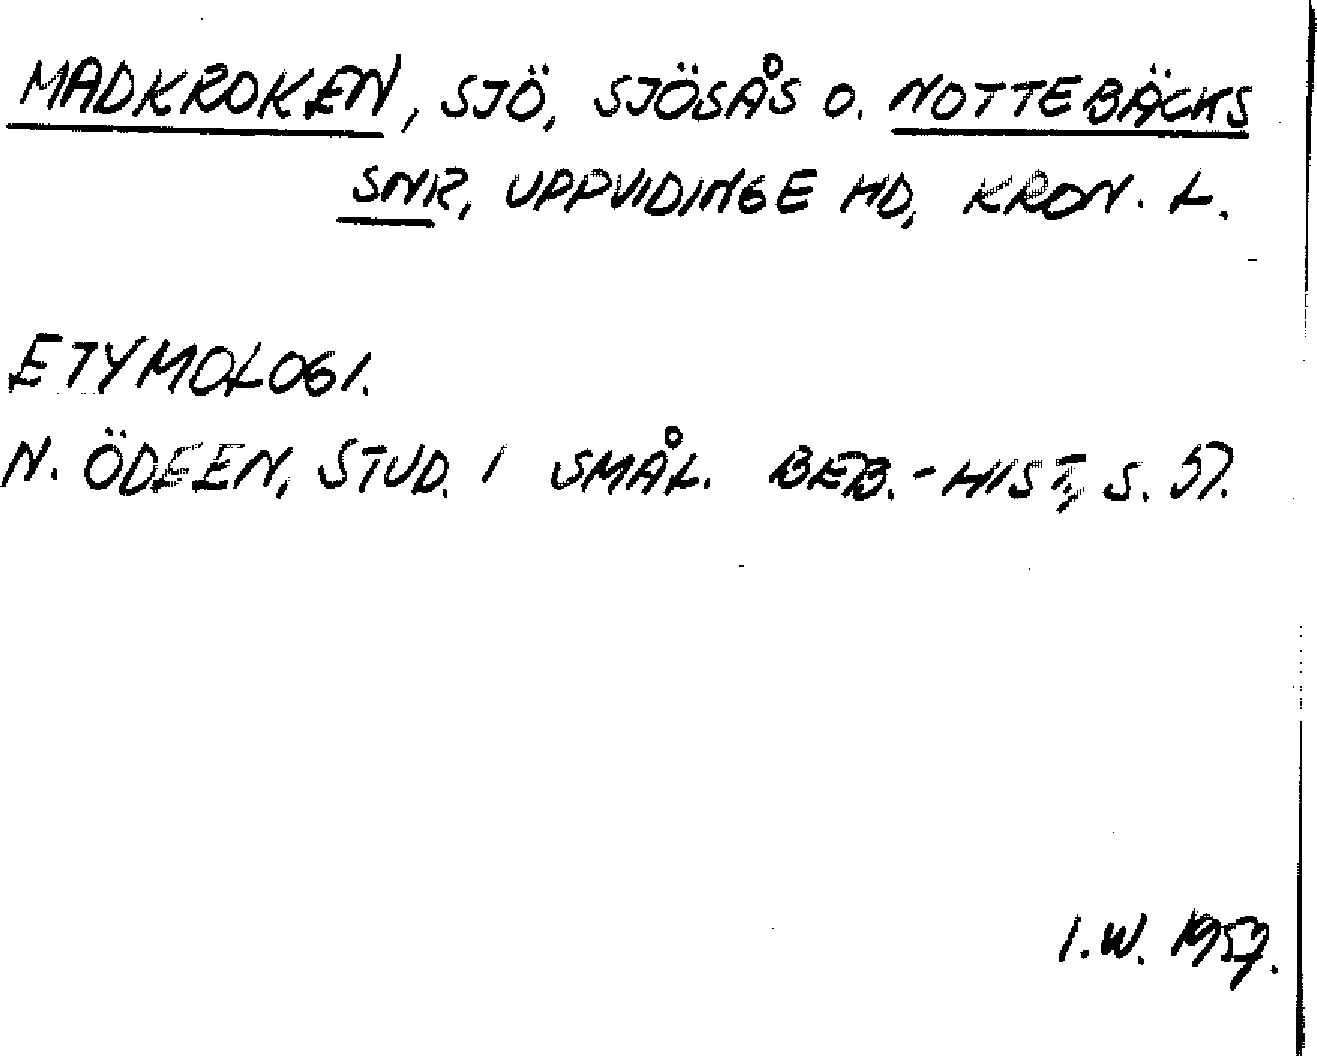 MADKROKEN, SJÖ, SJÖSÅS O. NOTTEBÄCKS
SNR, UPPVIDINGE HD, KRON. L.
ETYMOLOGI.
N. ÖDEEN, STUD. I SMÅL. BEB.-HIST., S. 57.
I.W. 1959.